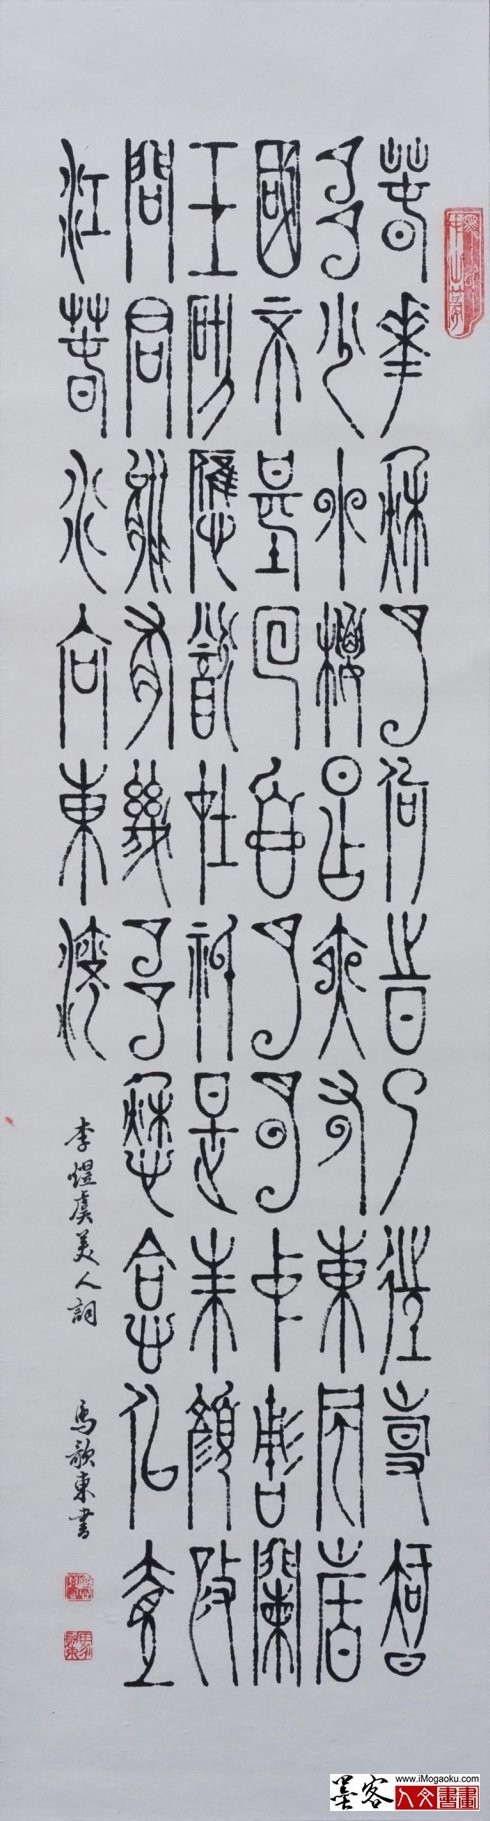 春花秋月何時了往事知
多少小樓昨夜又東風故
國不堪回首月明中雕欄
玉砌應猶在只是朱顏改
問君能有幾多愁恰似一
江春水向東流
李煜虞美人詞
馬歆東書
www.iMogaoku.com
墨客人文書畫